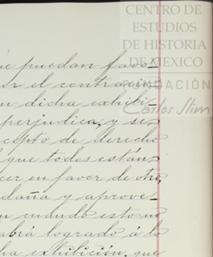 CENTRO DE
ESTUDIOS
DE HISTORIA
DE MEXICO
FUNDACIÓN
Carlos Slim
que puedan favo-
el contrario
dicha exhibi-
perjudica, y se
cepto de derecho
que todos estan
cer en favor de otro
daña y aprove-
mundo esto no
abrá logrado á lo
ha exhibición, que